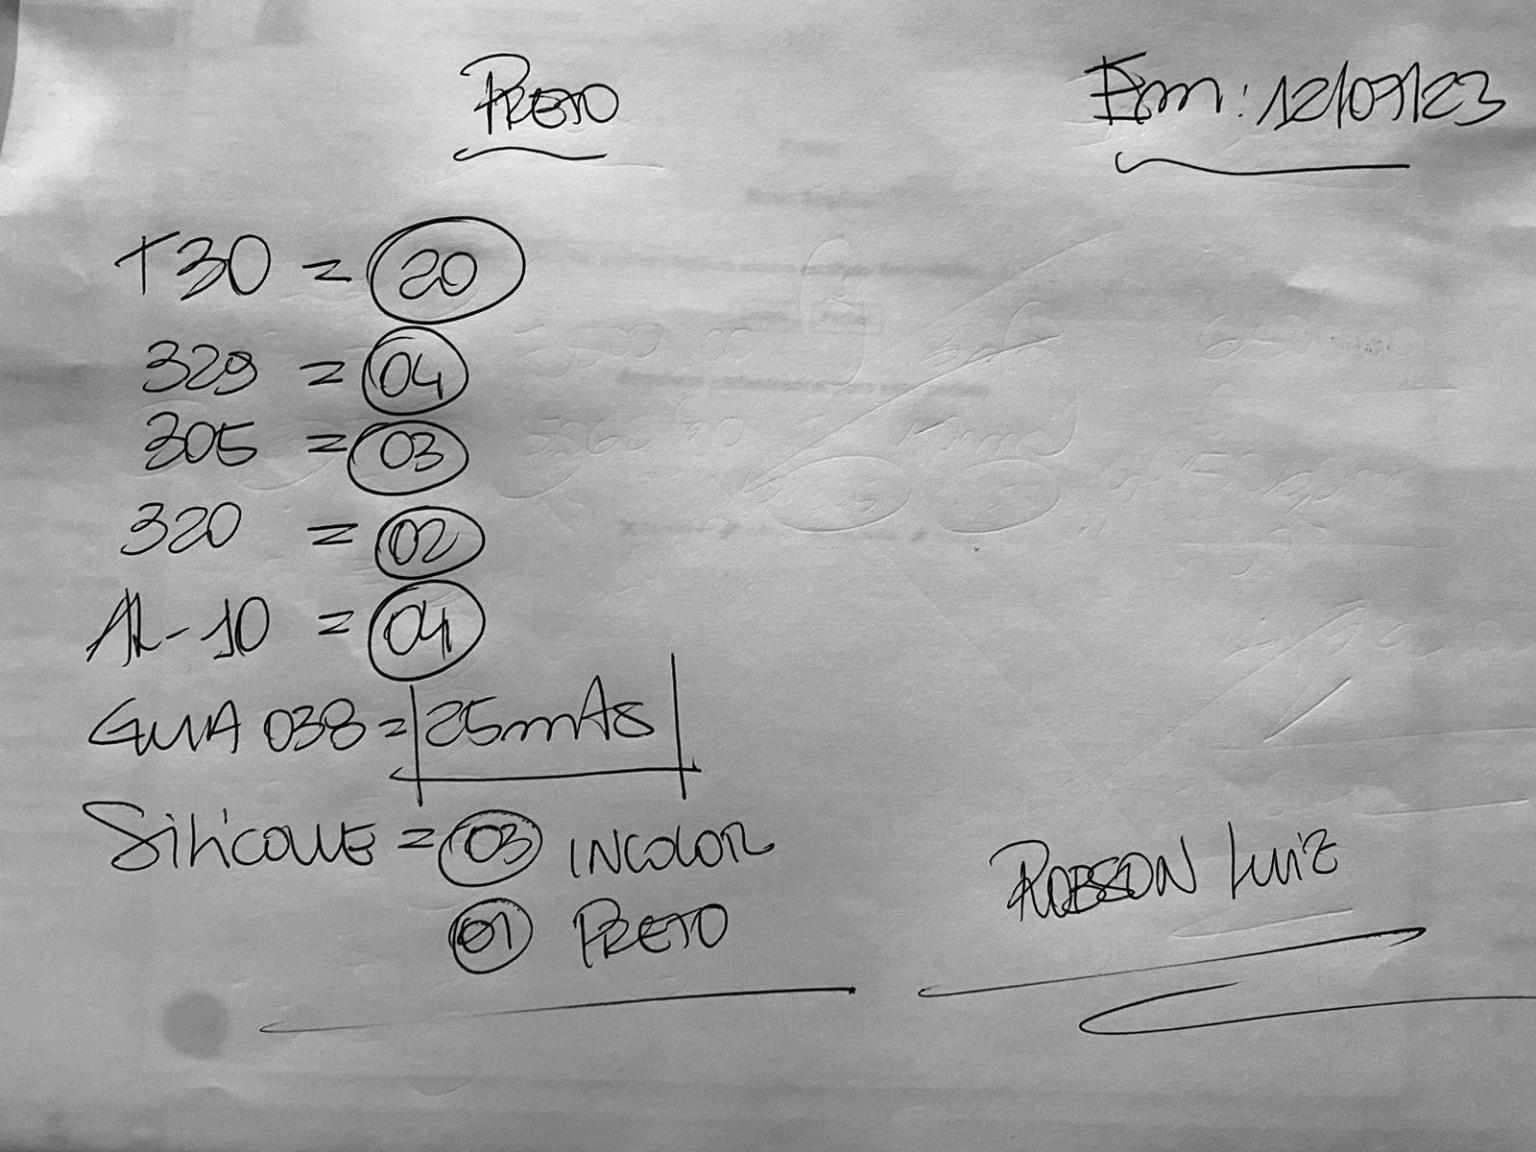 PRETO
Em: 12/09/23
T30 = 20
329 = 04
305 = 03
320 = 02
AL-10 = 04
GUIA 038 = 25mts
SILICONE = 03 INCOLOR
01 PRETO
ROBSON LUIZ